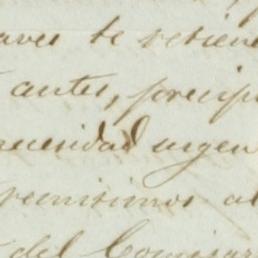 te retiene
antes, precip
necesidad urgen
remitimos al
del Comisar